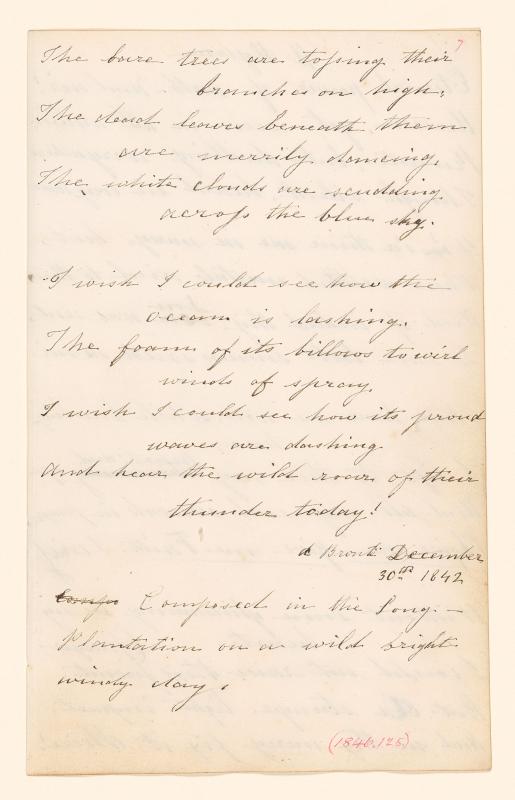 7
The bare trees are tossing their
branches on high,
The dead leaves beneath them
are merrily dancing,
The white clouds are scudding
across the blue sky.
I wish I could see how the
ocean is lashing,
The foam of its billows to wirl
winds of spray
I wish I could see how its proud
waves are dashing
And hear the wild roar of their
thunder today!
A Brontë December
30th 1842
Compo Composed in the Long –
Plantation on a wild bright
windy day.
(1846.125)